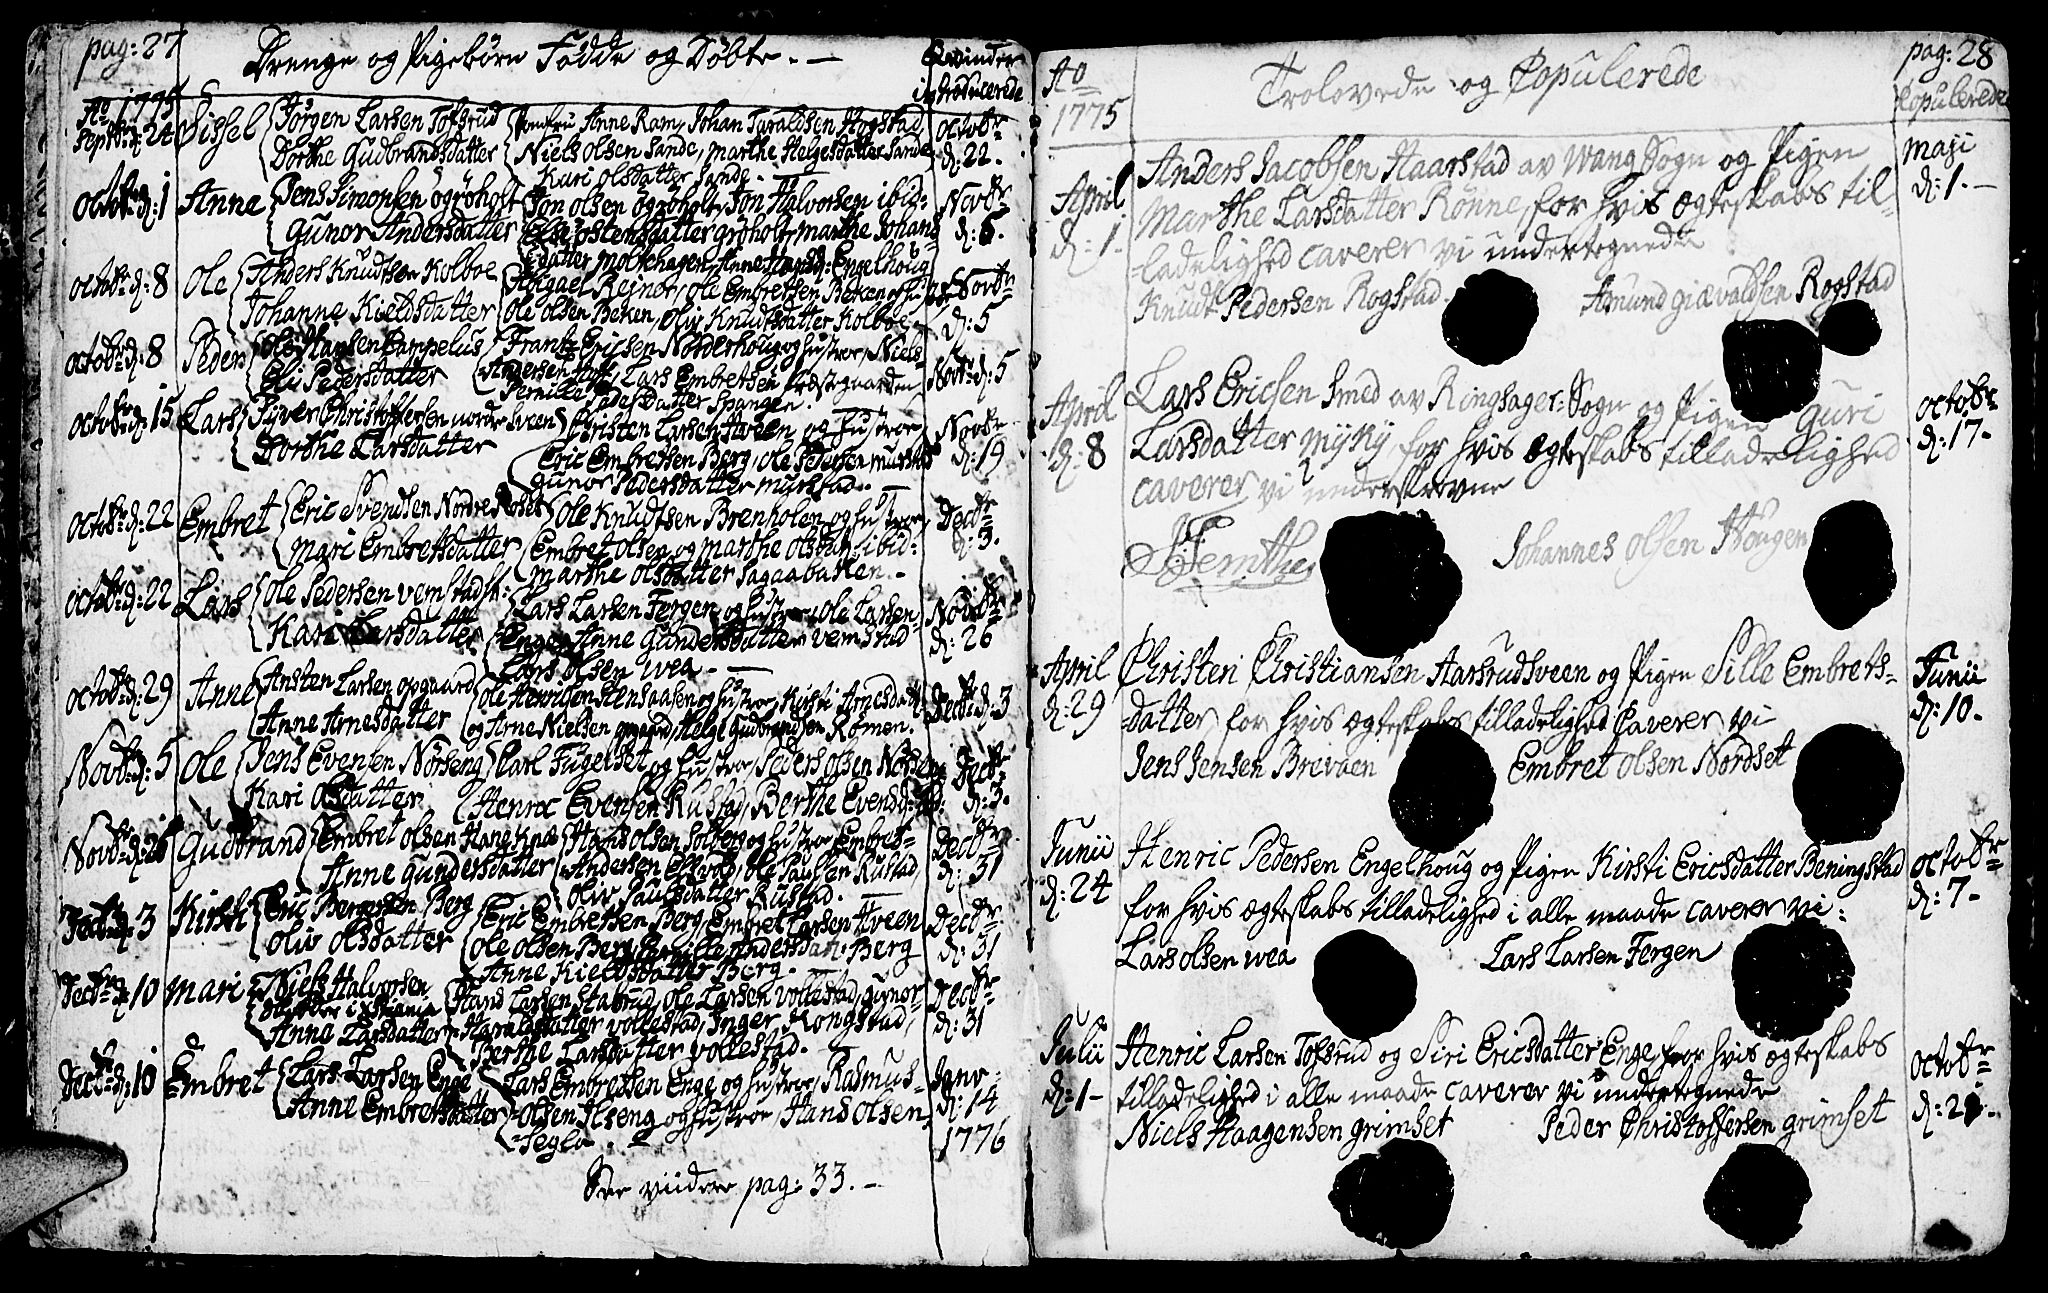 pag: 27
Drenge og Pigebörn Födde og Döbte. —
Qvinder
introducerede
Ao 1775
Septbr d: 24 Sissel Jörgen Larsen Tofsrud Jomfru Anne Ram, Johan Taraldsen Hogstad, octobr
Dorthe Gudbrandsdatter Niels olsen Sande, marthe Helgesdatter Sande, d: 22.
Kari olsdatter Sande. —
octobr d: 1 Anne Jens Simonsen ögröholt Jon olsen ögröholt, Jon Halvorsen ibid: Novbr
Gunor Andersdatter Else östensdatter gröholt, marthe Johans d: 5.
datter molstehagen, Anne Engelhoug
octobr d: 8 ole Anders Knudtsen Kolboe Abigael Rejner, ole Embretsen Beken og hustroe, Novbr
Johanne Kieldsdatter ole olsen Beken, oliv Knudtsdatter Kolboe. d: 5
octobr d: 8 Peder ole Hansen Campelus Frantz Ericsen Norderhoug og hustroe, Niels Novbr d: 5
Eli Pedersdatter Andersen, Lars Embretsen Prestegaarden
Pernille datter Spangen.
octobr d: 15 Lars Syver Christoffersen nordre Sveen Christen Larsen Hveen og hustroe Novbr
Dorthe Larsdatter Eric Embretsen Berg, ole Pedersen murstad d: 19
gunor Pedersdatter murstad. —
octobr d: 22 Embret Eric Svendsen Nordre Roset ole Knudtsen Brenholen og hustroe, Decbr
Mari Embretsdatter Embret olsen og marthe olsdatr ibid: d: 3.
marthe olsdatter Sagaabakken. —
octobr d: 22 Lars ole Pedersen vemstad Lars Larsen Fergen og hustroe, ole Larsen Novbr
Kari Larsdatter Enger, Anne Gundersdatter vemstad d: 26
Lars olsen wea. —
octobr d: 29 Anne Ansten Larsen opgaard ole Henricsen Stensaasen og hustroe, Kirsti Arnesdatr Decbr d: 3
Anne Arnesdatter og Arne Nielsen opgaard, Helge Gudbrandsen Römen.
Novbr d: 5 ole Jens Evensen Nörseng Carl Fugelset og hustroe, Peder olsen Nörseng Decbr
Kari olsdatter Henric Evensen Rustad, Berthe Evensd: ibd: d: 3.
Novbr d: 26 Gudbrand Embret olsen Hans olsen Solberg og hustroe Embret Decbr
Anne gundersdatter Andersen, ole Paulsen Rustad, d: 31
oliv Paulsdatter Rustad.
Decbr d: 3 Kirsti Eric Bergersen Berg Eric Embretsen Berg, Embret Larsen Hveen Decbr
oliv olsdatter ole olsen Berg, Pernille Andersdatr Berg d: 31
Anne Kieldsdatter Berg. —
Decbr d: 10 mari Niels Halvorsen Hans Larsen Stabrud, ole Larsen vollestad, gunor Decbr
i Xtiania Haraldsdatter vollestad, Inger Kongstad, d: 31
Anne Larsdatter Berthe Larsdatter vollestad.
Decbr d: 10 Embret Lars Larsen Enge Lars Embretsen Enge og hustroe, Rasmus Janv
Anne Embretsdatter olsen Ilseng og hustroe, Hans olsen d: 14
Seglo. 1776
See viidere pag: 33. —
pag: 28
Ao 1775
Trolovede og Copulerede
Copulerede
April d: 1. Anders Jacobsen Haarstad av Wang Sogn og Pigen maji d: 1. —
Marthe Larsdatter Rönne, for hvis ægteskabs til-
ladelighed caverer vi undertegnede
Knudt Pedersen Rogstad. Amund giævaldsen Rogstad
April d: 8 Lars Ericsen Smed av Ringsager Sogn og Pigen Guri octobr d: 17.
Larsdatter Myky, for hvis ægteskabs tilladelighed
caverer vi underskrevne
Johannes olsen Hougen
April d: 29 Christen Christiansen Aarsrudsveen og Pigen Sille Embrets- Junii d: 10.
datter, for hvis ægteskabs tilladelighed Caverer vi
Jens Jensen Brevaen Embret olsen Nordset
Junii d: 24 Henric Pedersen Engelhoug og Pigen Kirsti Ericsdatter Beningstad octobr d: 7.
for hvis ægteskabs tilladelighed i alle maade caverer vi:
Lars olsen wea Lars Larsen Fergen
Julii d: 1 — Henric Larsen Tofsrud og Siri Ericsdatter Enge for hvis ægteskabs octobr d: 21.
tilladelighed i alle maade caverer vi undertegnede
Niels Haagensen grimset Peder Christoffersen grimset